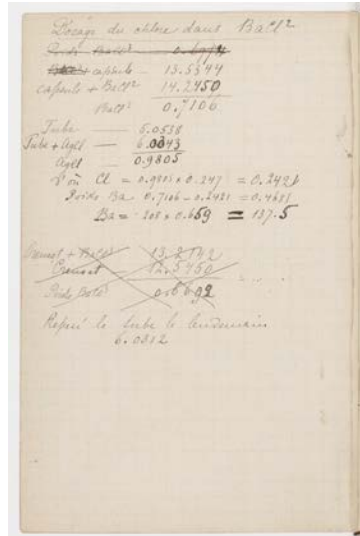 Dosage du chlore dans BaCl²
Poids BaCl²
capsule — 13.5344
capsule + BaCl² 14.2450
BaCl² 0.7106
Tube — 5.0538
Tube + AgCl — 6.0343
AgCl 0.9805
D'où Cl = 0.9805 x 0.247 = 0.2421
Poids Ba 0.7106 - 0.2421 = 0.4685
Ba = 208 x 0.659 = 137.5
Creuset + BaCl² 13.2142
Creuset — 12.5450
Poids BaCl² 0.6692
Repesé le tube le lendemain
6.0352